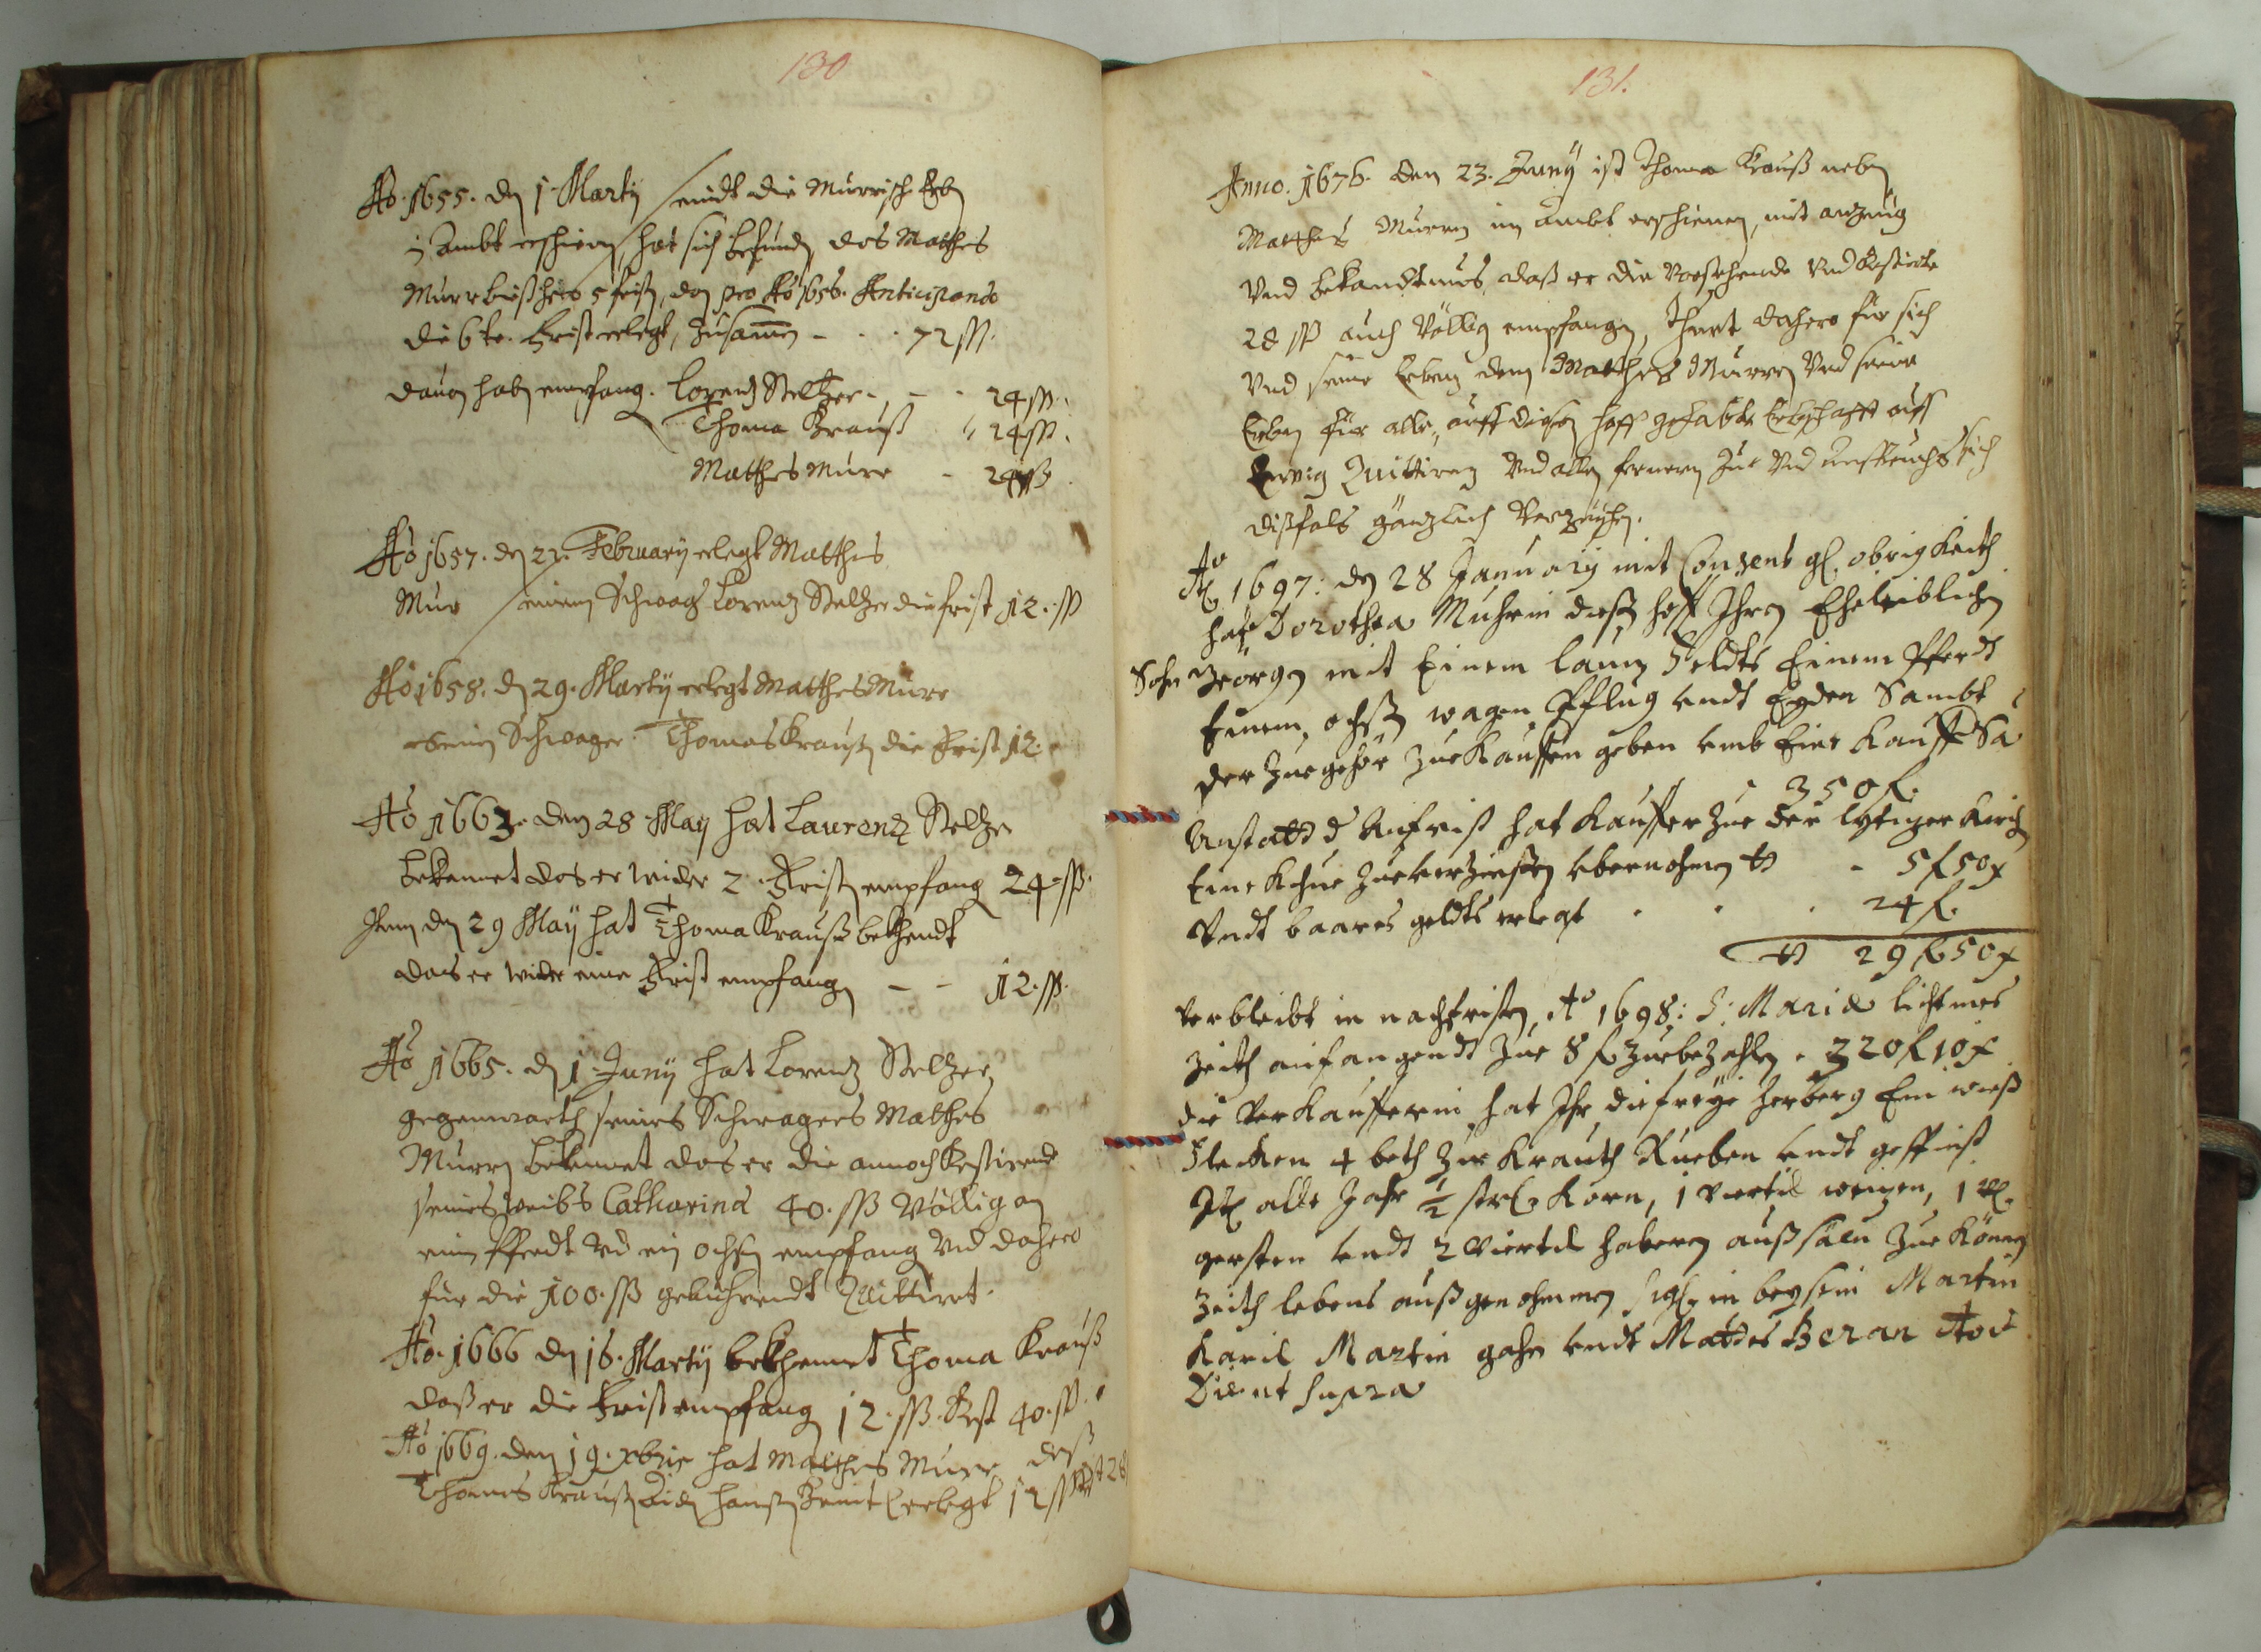 130
Aö. 1655. dz 1. Marty seindt die Murrische Erbn
in Ambt erschienen, hat sich befunden, das Mathes
Murr bießhero 5 fristn, den pro Aö 1656. Anticipando
die 6te. Frist erlegt, Zusamen - - - 72 ßß.
dauon habn empfang. Lorentz Steltzer - - - 24 ßß.
Thoma Krauß " 24 ßß.
Mathes Murr - 24 ßß
Aö 1657. den 22. February erlegt Matthes
Mur seinem Schwagr Lorentz Steltzer die frist 12. ßß
Aö 1658. den 29. Marty erlegt Matthes Murr
seinen Schwager Thomas Krauß die Frist 12.
Aö 1663. den 28. May hat Laurentz Steltzer
bekennet das er wider 2. Fristn empfang 24. ßß.
Item den 29 May hat Thoma Krauß bekhendt
das er wider eine Frist empfangn - - 12. ßß.
Aö 1665. den 1. Juny hat Lorentz Steltzer
gegenwarth seines Schwagers Mathes
Murrn bekennet das er die annoch Restirende
seines weibs Catharina 40. ßß Völlig an
ein Pferdt vnd ein ochsn empfang vnd dahero
für die 100. ßß gebührendt Quittiret.
Aö. 1666 den 16. Marty bekhennet Thoma Krauß
daß er die Frist empfang 12. ßß. Rest 40. ßß.
Aö 1669. den 19. xbris hat Mathes Murr deß
Thomas Kraußn Hansn erlegt 12 ßß Rest 28
131.
Anno. 1676. den 23. Juny ist Thoma Krauß nebn
Matthes Murrn im Ambt erschienen, mit anzeug
vnd bekandtnus, daß er die vorstehende vnd Restirte
28 ßß auch Völlig empfangen, Thuet dahero für sich
vnd seine Erben dem Matthes Murrn vnd seine
Erben für alle, auff diesen Hoff gehabte Erbschafft auff
Ewig Quittiren vnd allen fernern Zue vnd anspruchs sich
dißfals gäntzlich Verzeyhen.
Aö 1697: den 28 January mit Consens gl. obrigkeith
hat Dorothea Muhrin diesen hoff Ihren Eheleiblichen
Sohn Georgn mit Einem lanz Feldts Einem Pferdt
Einem ochsn wagen Pflug vndt Egden Sambt
der Zuegehör Zue Kauffen geben vmb Eine Kauff Sa
350 f.
Anstatt d Anfrist hat Kauffer Zue der lytiger Kirchn
Eine Khue Zueverzinsen vbernohmen tt - 5 f 50 x
Vndt baares geldts erlegt . . . 24 f.
tt 29 f 50 x
verbleibt in nachfristen, Aö 1698: S: Maria lichtmes
Zeith anfangendt Zue 8 f. Zuebezahlen . 320 f 10 x
die Verkaufferin hat Ihr die freye herberg Ein wieß
Flecken 4 beth Zue Krauth Rueben vndt
Itl alle Jahr ½ strl. Korn, 1 viertel weizen, 1 vl.
gersten vndt 2 viertel haberen aussäen Zue Können
Zeith lebens außgenohmmen in beysein Martin
Karil Martin gahn vndt Mattes Beran Aoe
Die ut supra